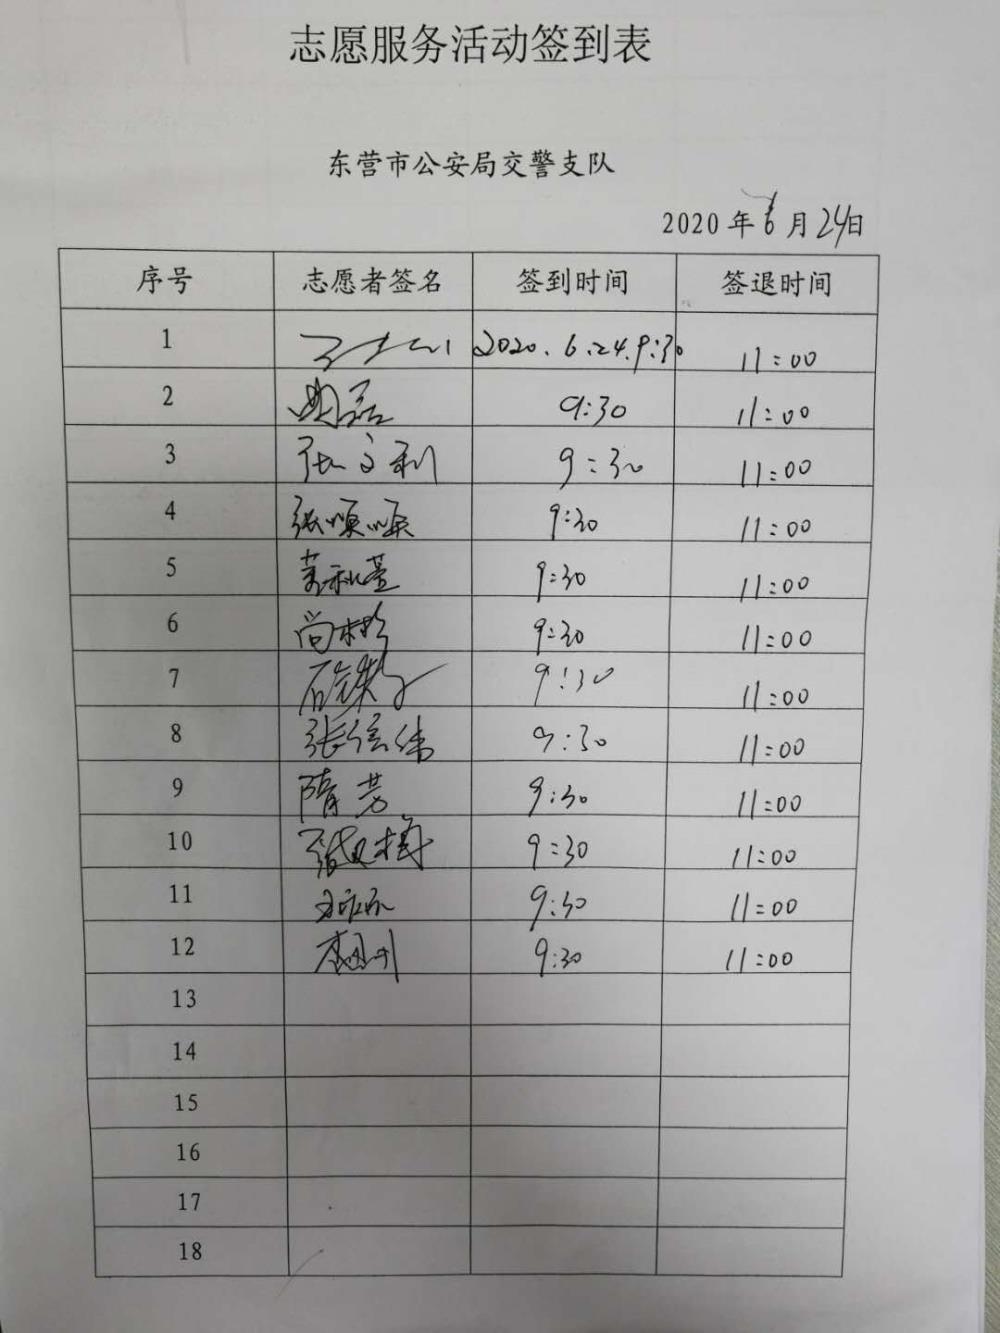 志愿服务活动签到表
东营市公安局交警支队
2020年6月24日
序号 志愿者签名 签到时间 签退时间
1 2020.6.24.9:30 11:00
2 曲磊 9:30 11:00
3 张文利 9:30 11:00
4 张顺顺 9:30 11:00
5 9:30 11:00
6 尚 9:30 11:00
7 石 9:30 11:00
8 张信伟 9:30 11:00
9 隋芳 9:30 11:00
10 9:30 11:00
11 9:30 11:00
12 9:30 11:00
13
14
15
16
17
18